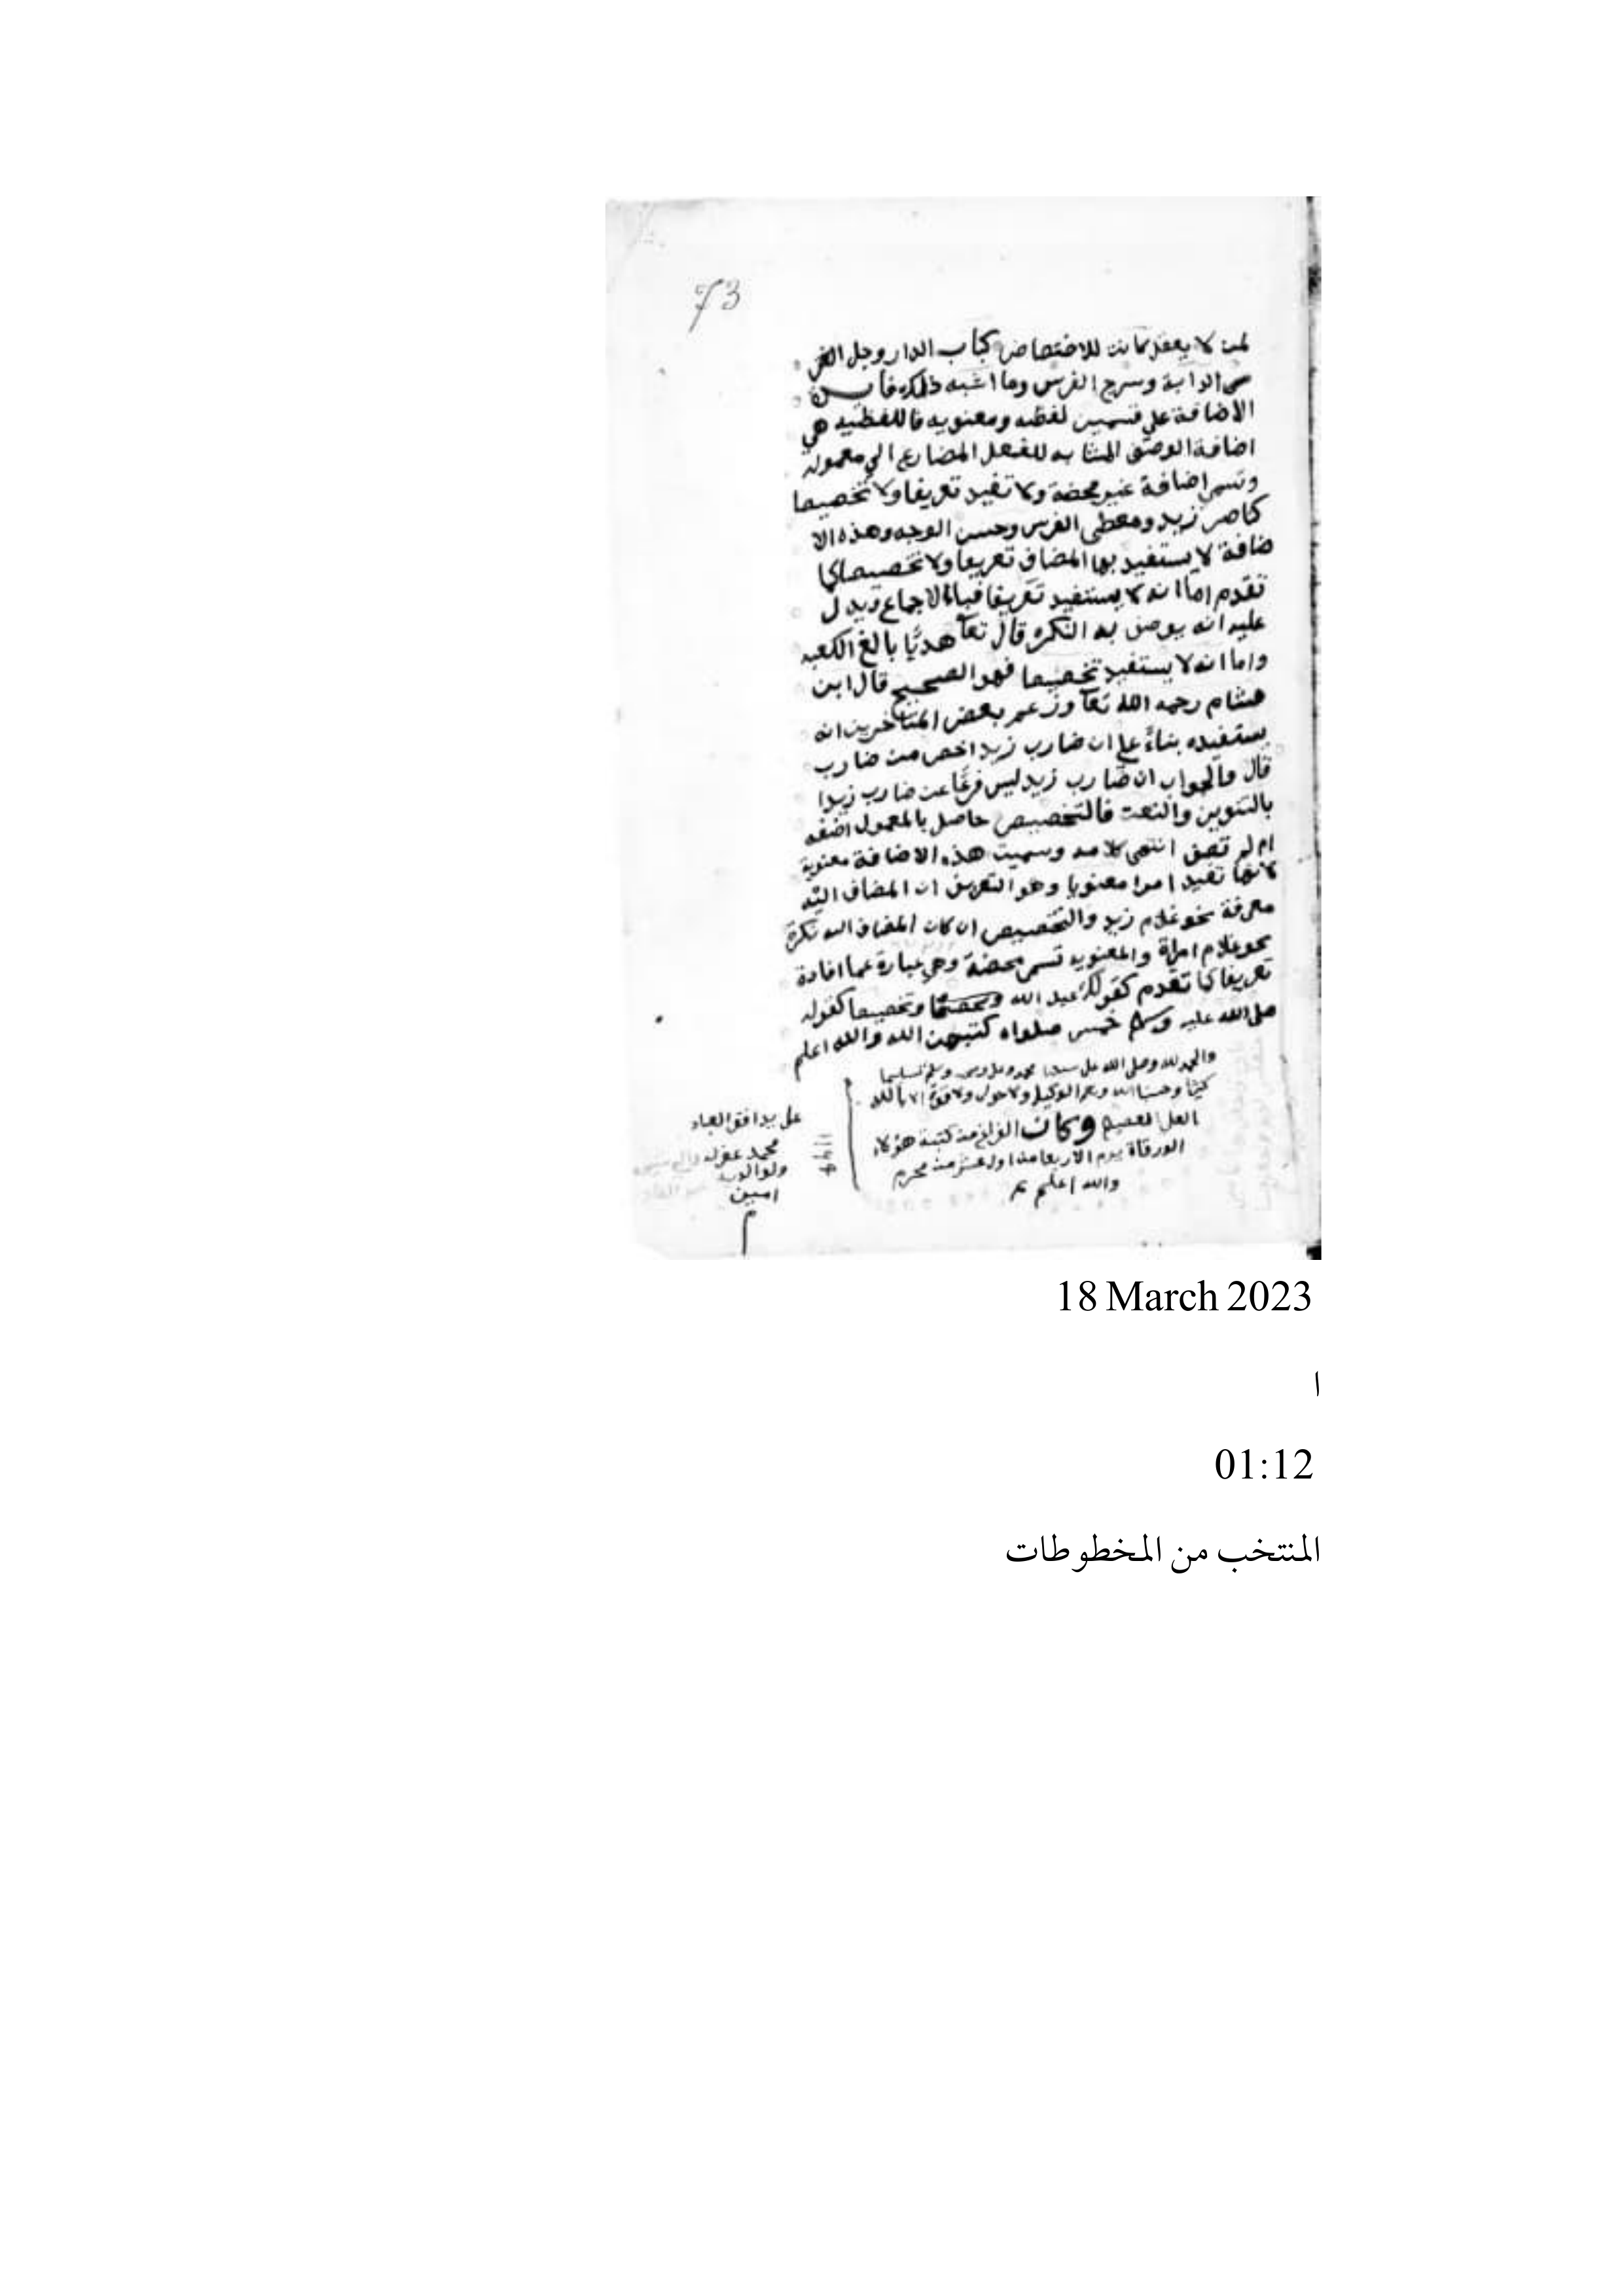 73
لمن لا يعقل كانت للاختصاص كباب الدار وجل الفر
س الدابة وسرج الفرس وما اشبه ذلك فايدة
الاضافة على قسمين لفظيه ومعنويه فاللفظيه هي
اضافة الوصف المشابه للفعل المضارع الي معموله
وتسمى اضافة غير محضة ولا تفيد تعريفا ولا تخصيصا
كناصر زيد ومعطى الفرس وحسن الوجه وهذه الا
ضافة لا يستفيد بها المضاف تعريفا ولا تخصيصا كما
تقدم اما انه لا يستفيد تعريفا فبالاجماع ويدل
عليه انه يوصف به النكره قال تعآ هديًا بالغ الكعبه
واما انه لا يستفيد تخصيصا فهو الصحيح قال ابن
هشام رحمه الله تعآ وزعم بعض المتاخرين انه
يستفيده بناءً على ان ضارب زيد اخص من ضارب
قال والجواب ان ضارب زيد ليس فرعًا عن ضارب زيدا
بالتنوين والنعت فالتخصيص حاصل بالمعمول اضفه
ام لم تضف انتهى كلامه وسميت هذه الاضافة معنوية
لانها تفيد امرا معنويا وهو التعريف ان المضاف اليه
معرفة نحو غلام زيد والتخصيص ان كان المضاف اليه نكرة
نحو غلام امراة والمعنويه تسمى محضة وهي عبارة عما افادة
تعريفا كما تقدم كقولك عبد الله وتخصيصا كقوله
صلى الله عليه وسلم خمس صلواه كتبهن الله والله اعلم
والحمد لله وصلى الله على سيدنا محمد وسلم تسليما
كثيرا وحسبنا الله ونعم الوكيل ولا حول ولا قوة الا بالله
العلى العظيم وكان الفراغ من كتبة هؤلاء
الورقاة يوم الاربعا من اول عشر من محرم
والله اعلم
على يد افقر العباد
محمد
ولوالديه
امين
18 March 2023
ا
01:12
المنتخب من المخطوطات